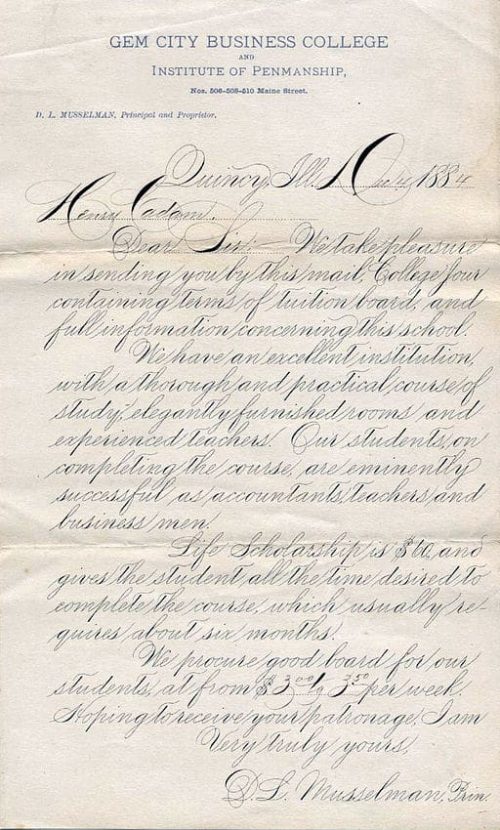 GEM CITY BUSINESS COLLEGE
AND
INSTITUTE OF PENMANSHIP,
Nos. 506-508-510 Maine Street.
D. L. MUSSELMAN, Principal and Proprietor.
Quincy, Ill. Dec 4, 1884
Henry Cadam.
Dear Sir: We take pleasure
in sending you by this mail, College Jour
containing terms of tuition board, and
full information concerning this school.
We have an excellent institution,
with a thorough and practical course of
study, elegantly furnished rooms and
experienced teachers. Our students, on
completing the course, are eminently
successful as accountants, teachers and
business men.
Life Scholarship is $60, and
gives the student all the time desired to
complete the course, which usually re-
quires about six months.
We procure good board for our
students, at from $3.00 to 3.50 per week.
Hoping to receive your patronage, I am
Very truly yours,
D. L. Musselman, Prin.